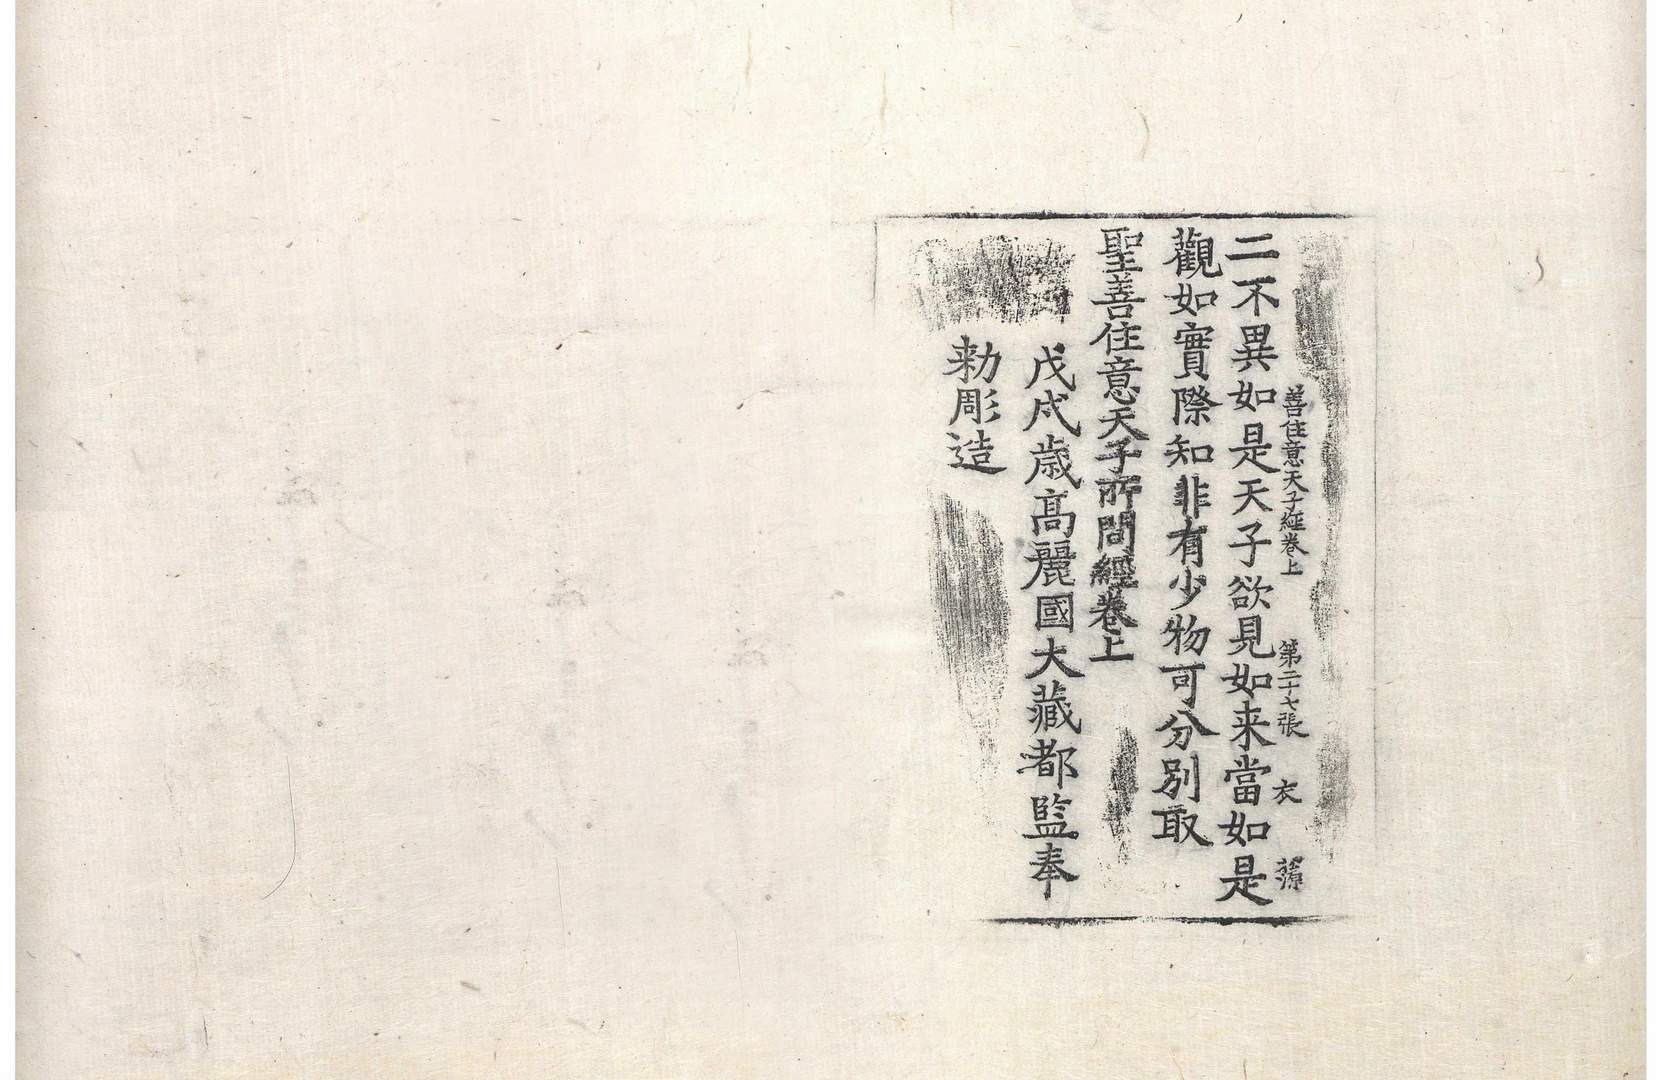 善住意天子經卷上 第二十七張 衣
二不異如是天子欲見如来當如是
觀如實際知非有少物可分別取
聖善住意天子所問經卷上
戊戌歲高麗國大藏都監奉
勅彫造